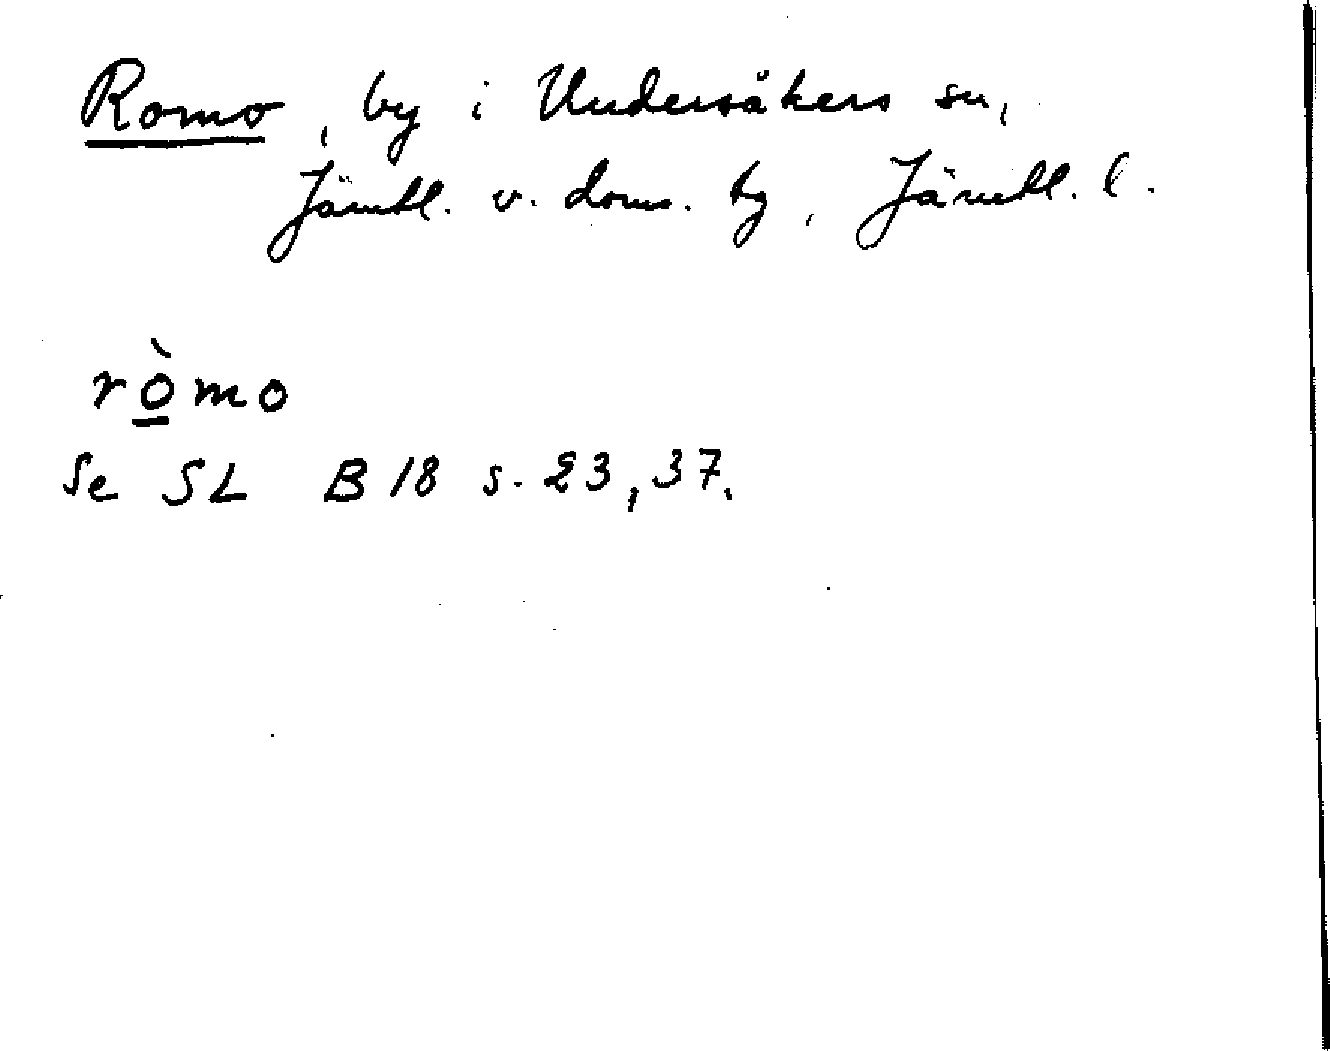 Romo, by i Undersåkers sn,
Jämtl. v. doms. hg, Jämtl. l.
rò̱mo
Se SL B 18 s. 23, 37.